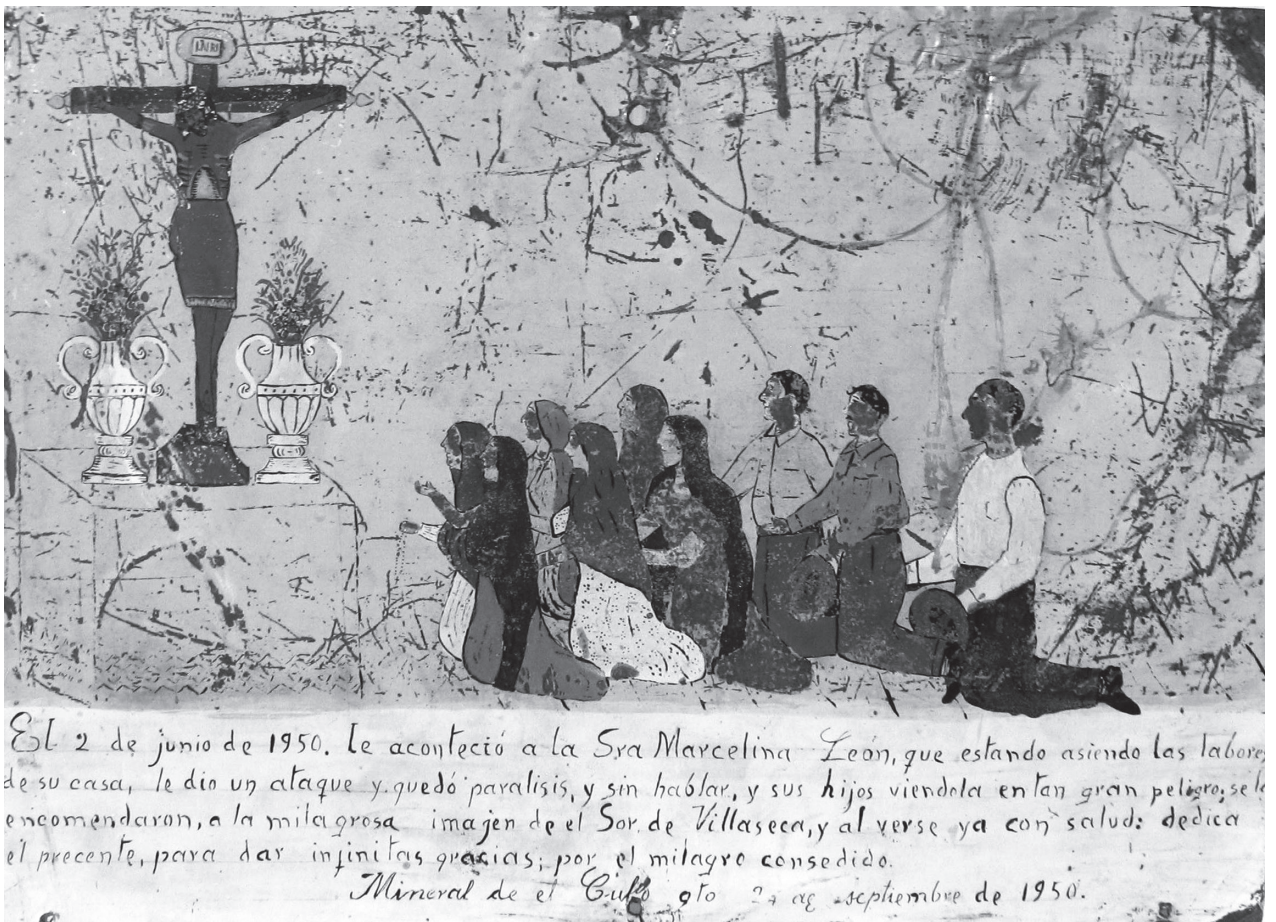 INRI
El 2 de junio de 1950. le aconteció a la Sra Marcelina León, que estando asiendo las labores
de su casa, le dio un ataque y quedó paralisis, y sin hablar, y sus hijos viendola en tan gran peligro, se la
encomendaron, a la milagrosa imajen de el Sor. de Villaseca, y al verse ya con salud: dedica
el precente, para dar infinitas gracias; por el milagro consedido.
Mineral de el gto septiembre de 1950.